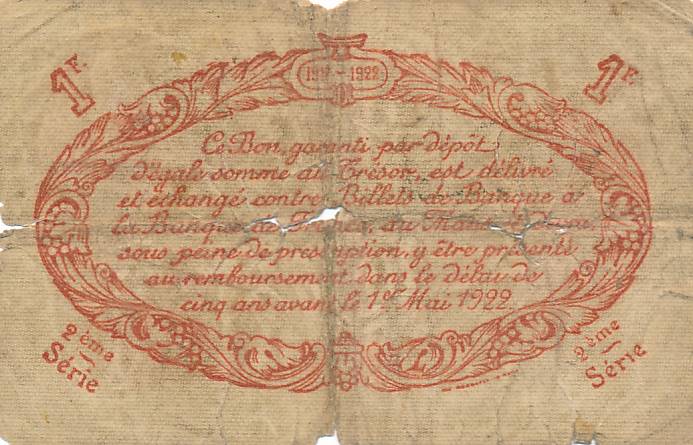 1F.
1917-1922
1F.
Ce Bon, garanti par dépôt
d'égale somme au Trésor, est délivré
et échangé contre Billets de Banque à
la Banque de France, du
sous peine de prescription, y être présenté
au remboursement dans le délai de
cinq ans avant le 1er Mai 1922
2ème
Série
2ème
Série